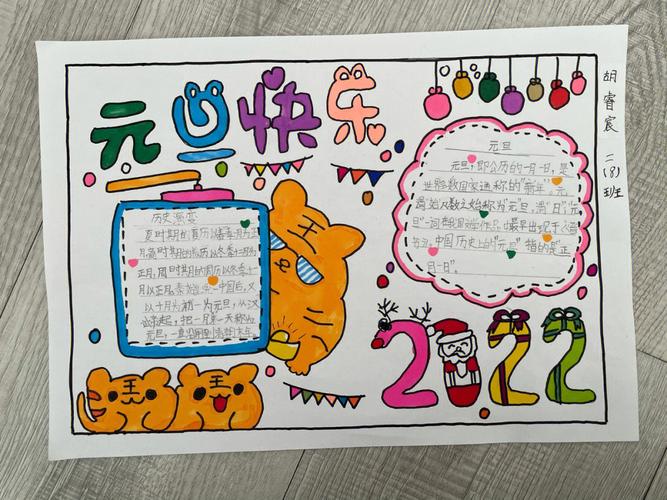 元旦快乐
胡睿宸 二(8)班
元旦
元旦,即公历的一月一日,是
世界多数国家通称的"新年"。元,
谓始,凡数之始称为"元";旦,谓"日";"元
旦"一词最早出现于《晋
书》。中国历史上的"元旦"指的是"正
月一日"。
历史演变
夏时期的夏历以春季一月为正
月,商时期的殷历以冬季十二月为
正月,周时期的周历以冬季十一
月以正月。秦始皇统一中国后,又
以十月初一为元旦,从汉
武帝起,把一月第一天称为
元旦,一直沿用到清朝末年
王
王
2022